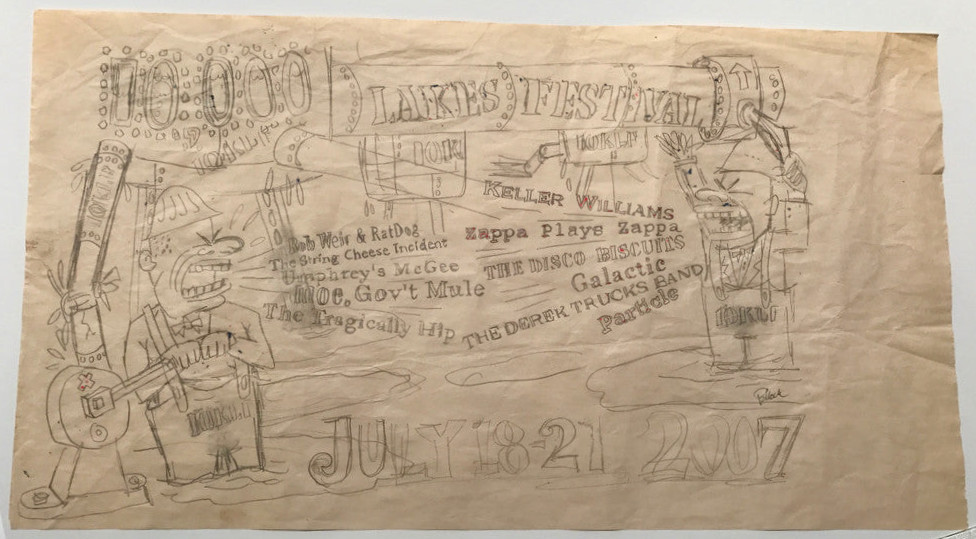 10,000 LAKES FESTIVAL
10KLF
10K
10KLF
KELLER WILLIAMS
Zappa Plays Zappa
THE DISCO BISCUITS
Galactic
THE DEREK TRUCKS BAND
Particle
Bob Weir & RatDog
The String Cheese Incident
Umphrey's McGee
moe. Gov't Mule
The Tragically Hip
10KLF
10KLF
JULY 18-21 2007